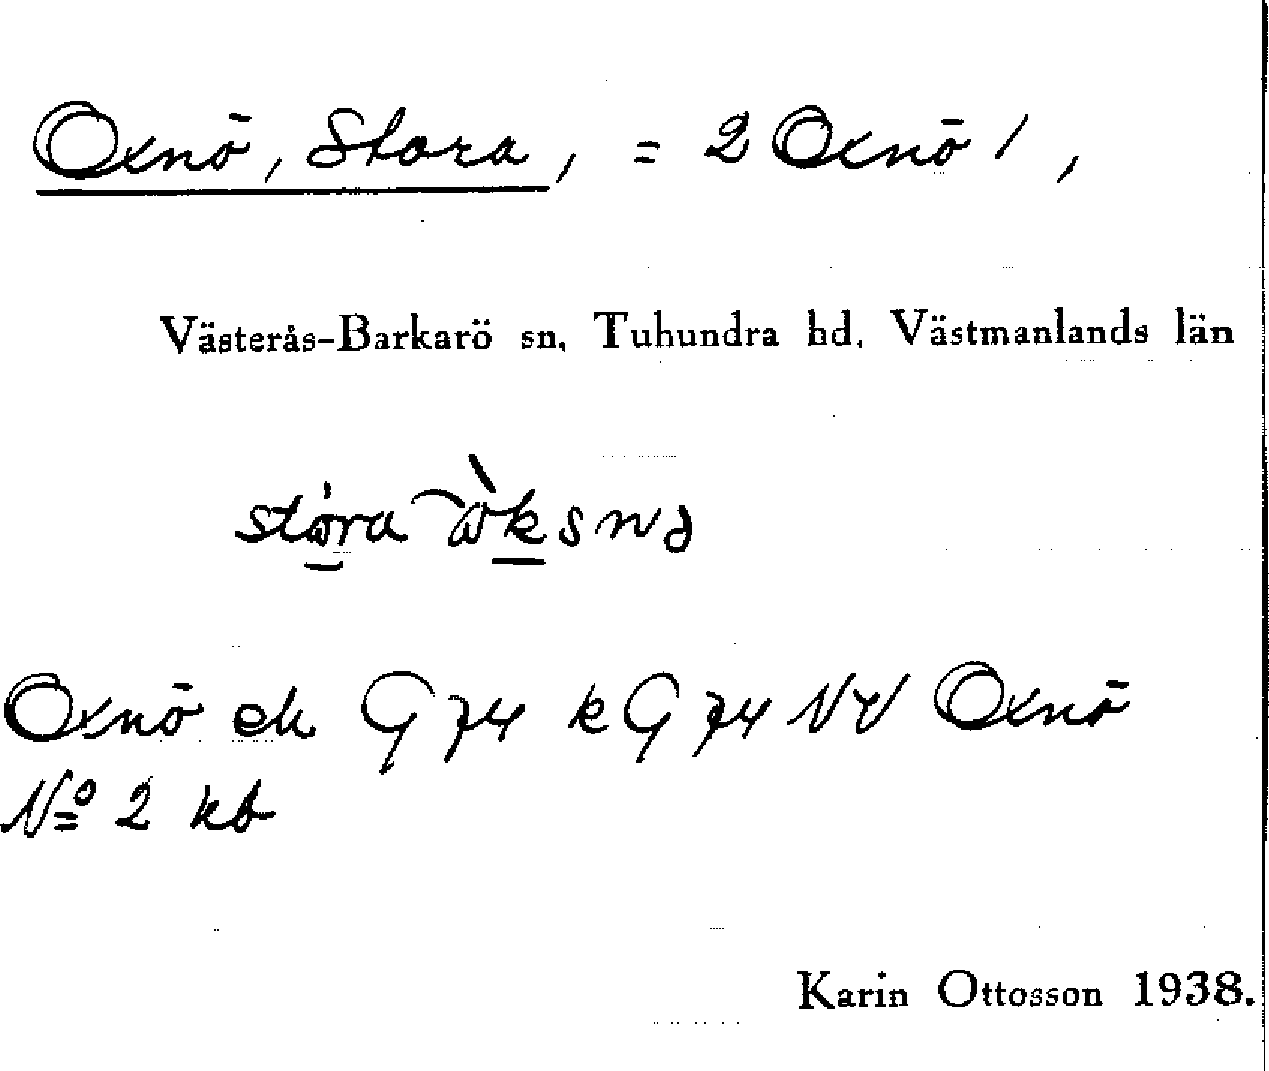 Oxnö, Stora, = 2 Oxnö 1,
Västerås-Barkarö sn, Tuhundra hd, Västmanlands län
Oxnö ek G 74 k G 74 NV Oxnö
Nº 2 kb
Karin Ottosson 1938.